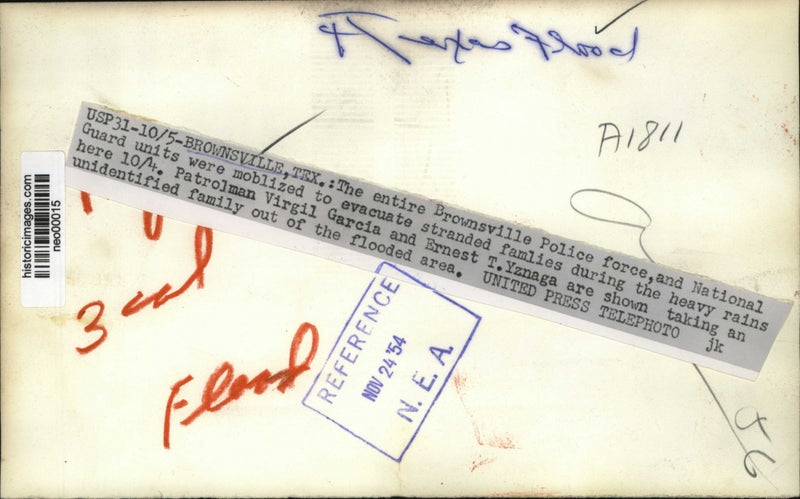 A1811
USP31-10/5-BROWNSVILLE, TEX.:The entire Brownsville Police force,and National
Guard units were moblized to evacuate stranded famlies during the heavy rains
here 10/4. Patrolman Virgil Garcia and Ernest T.Yznaga are shown taking an
unidentified family out of the flooded area. UNITED PRESS TELEPHOTO jk
historicimages.com
neo00015
3 col
Flood
REFERENCE
NOV 24 '54
N. E. A.